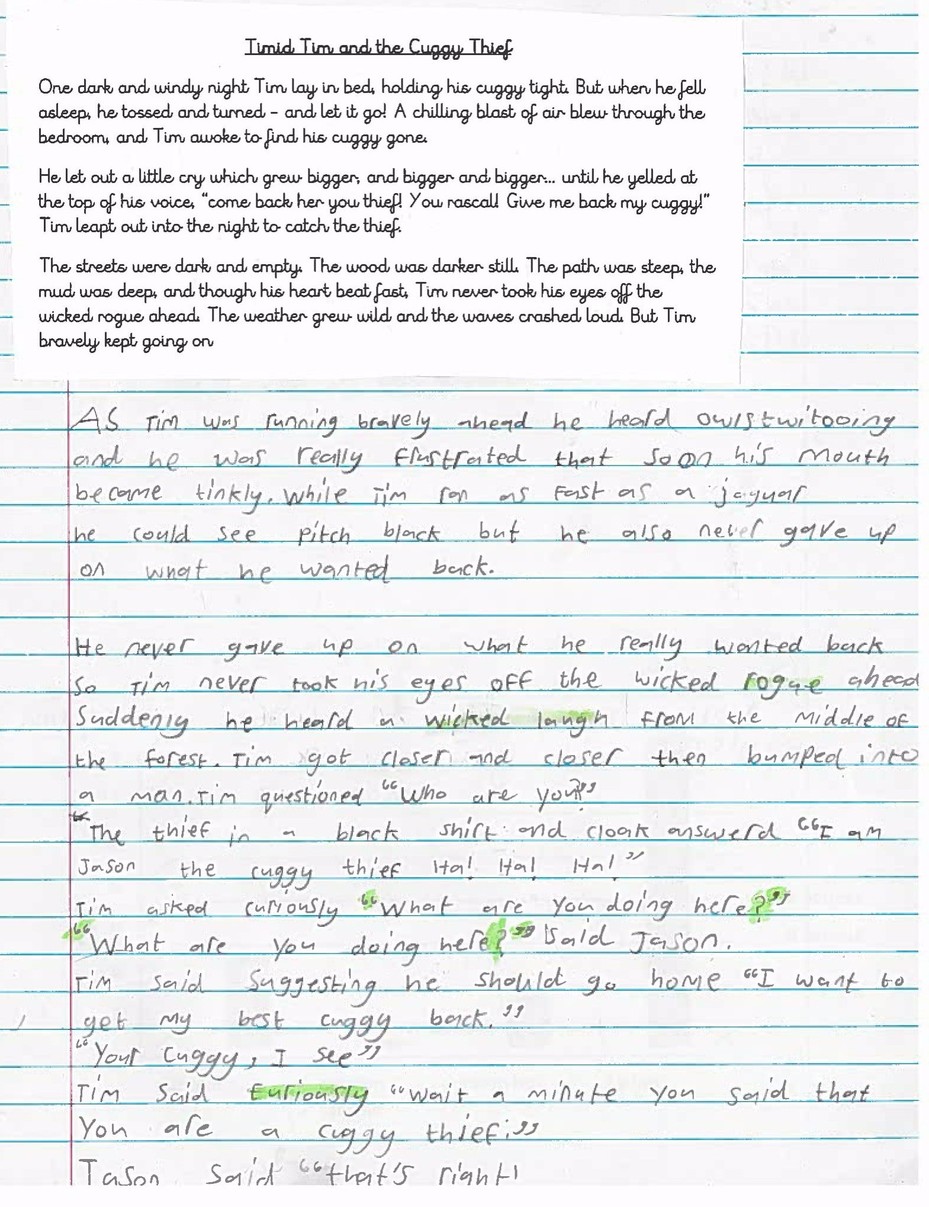 Timid Tim and the Cuggy Thief
One dark and windy night Tim lay in bed, holding his cuggy tight. But when he fell
asleep, he tossed and turned – and let it go! A chilling blast of air blew through the
bedroom, and Tim awoke to find his cuggy gone.
He let out a little cry which grew bigger, and bigger and bigger... until he yelled at
the top of his voice, "come back her you thief! You rascal! Give me back my cuggy!"
Tim leapt out into the night to catch the thief.
The streets were dark and empty. The wood was darker still. The path was steep, the
mud was deep, and though his heart beat fast, Tim never took his eyes off the
wicked rogue ahead. The weather grew wild and the waves crashed loud. But Tim
bravely kept going on
As Tim was running bravely ahead he heard owls twitooing
and he was really flustrated that soon his mouth
became tinkly. While Tim ran as fast as a jaguar
he could see pitch black but he also never gave up
on what he wanted back.
He never gave up on what he really wanted back
So Tim never took his eyes off the wicked rogue ahead
Suddenly he heard a wicked laugh from the middle of
the forest. Tim got closer and closer then bumped into
a man. Tim questioned "Who are you?"
"The thief in a black shirt and cloak answerd "I am
Jason the cuggy thief Ha! Ha! Ha!"
Tim asked curiously "What are you doing here?"
"What are you doing here?" Said Jason.
Tim said suggesting he should go home "I want to
get my best cuggy back."
"Your cuggy, I see"
Tim said furiously "wait a minute you said that
you are a cuggy thief."
Jason said "that's right!